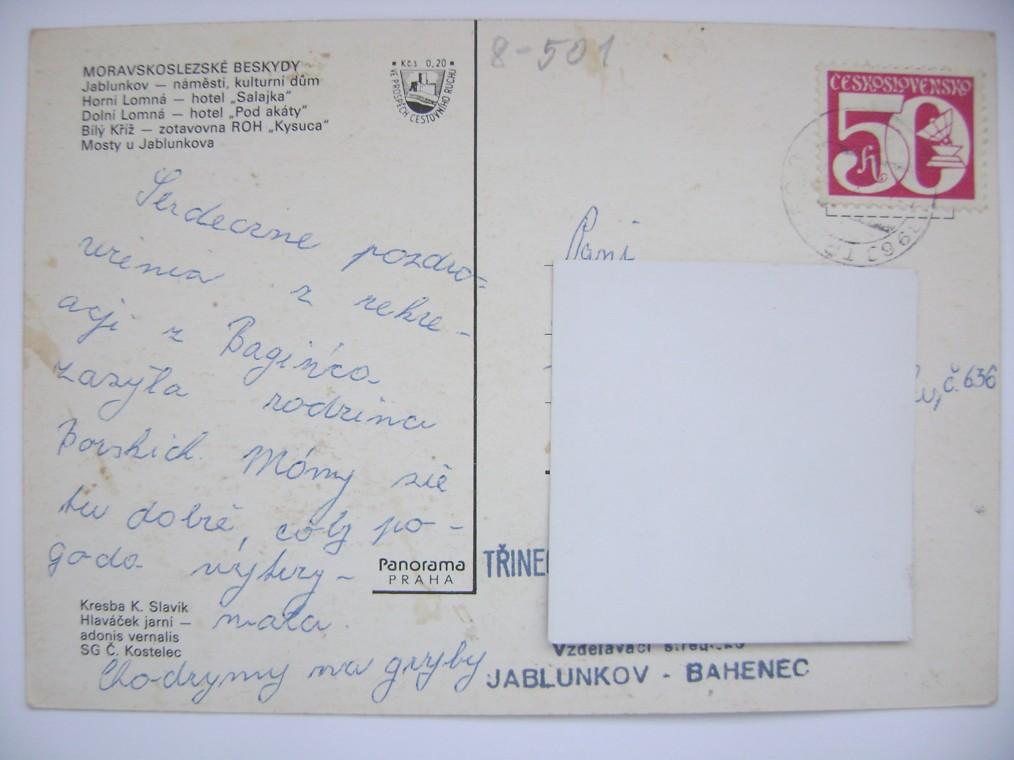 8-501
MORAVSKOSLEZSKÉ BESKYDY
Jablunkov — náměstí, kulturní dům
Horní Lomná — hotel „Salajka"
Dolní Lomná — hotel „Pod akáty"
Bílý Kříž — zotavovna ROH „Kysuca"
Mosty u Jablunkova
Kčs 0,20
VE PROSPĚCH CESTOVNÍHO RUCHU
ČESKOSLOVENSKO
50
h
Serdeczne pozdro=
wienia z rekre-
acji z Bagińca
zasyła rodzina
Borskich. Mómy sie
tu dobrě, cóły po-
goda wytrzy-
mała.
Chodzymy na grzyby
Panorama
PRAHA
Kresba K. Slavík
Hlaváček jarní —
adonis vernalis
SG Č. Kostelec
Pani
č. 636
TŘINE
Vzdělávací
JABLUNKOV - BAHENEC